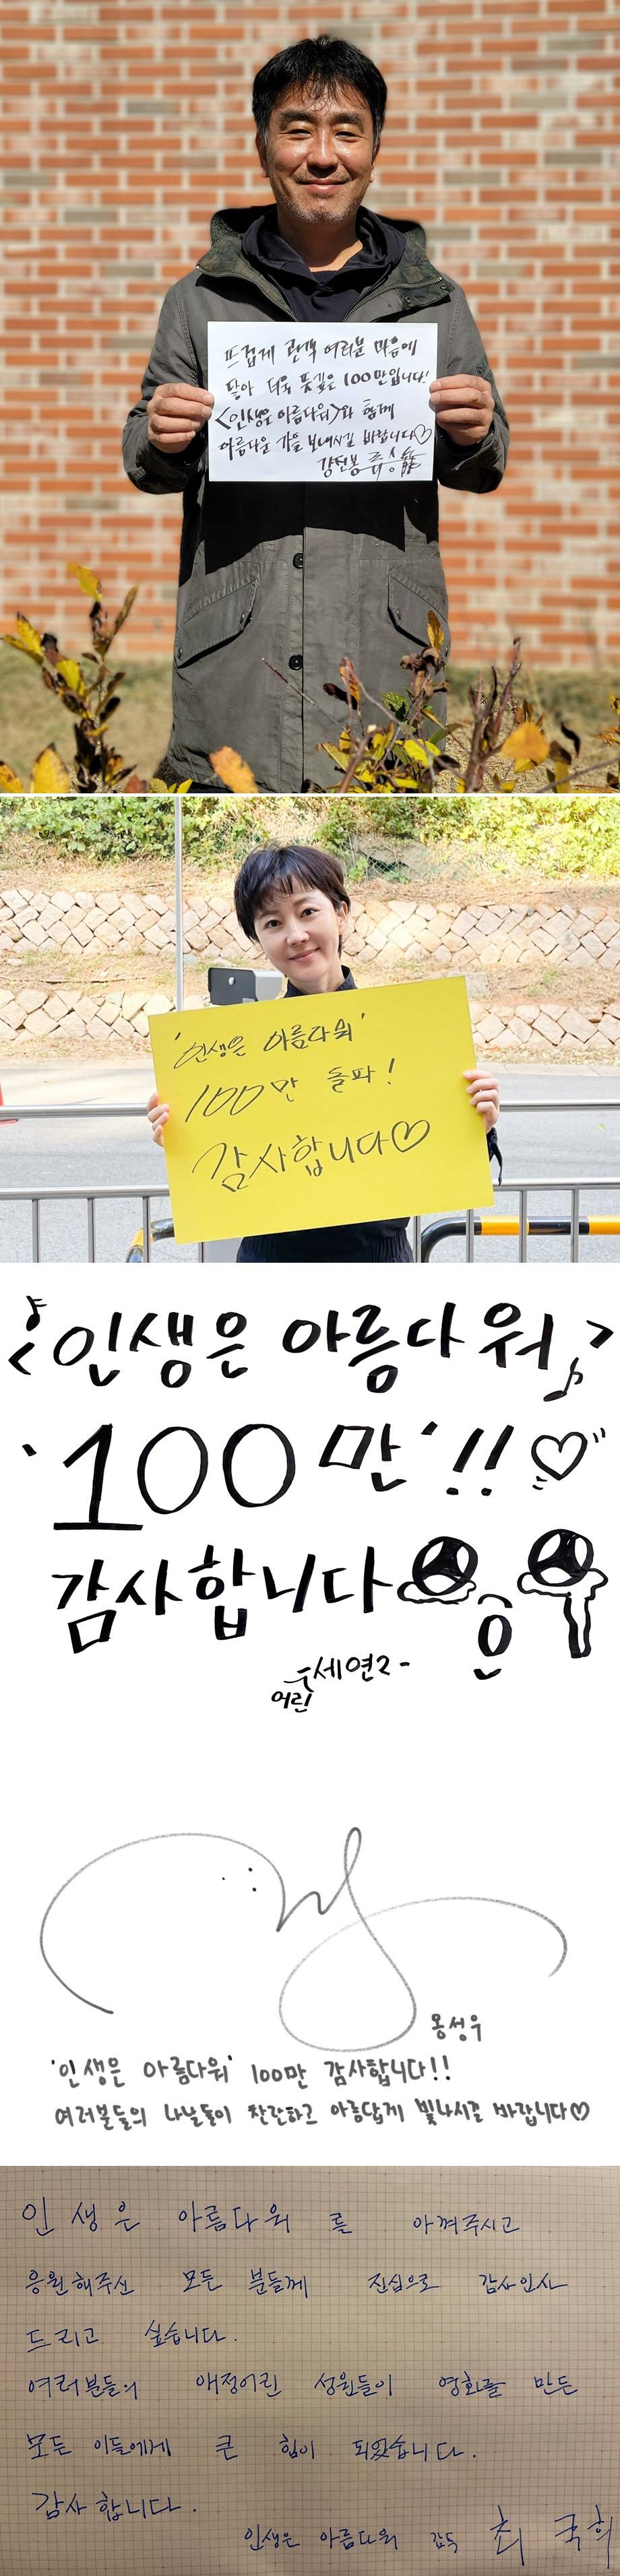 뜨겁게 관객 여러분 마음에
닿아 더욱 뜻깊은 100만입니다!
<인생은 아름다워>과 함께
아름다운 가을 보내시길 바랍니다♡
강진봉 류승龍
'인생은 아름다워'
100만 돌파!
감사합니다♡
<인생은 아름다워>
'100만'!!♡
감사합니다
어린 세연2-
옹성우
'인생은 아름다워' 100만 감사합니다!!
여러분들의 나날들이 찬란하고 아름답게 빛나시길 바랍니다♡
인생은 아름다워 를 아껴주시고
응원해주신 모든 분들께 진심으로 감사인사
드리고 싶습니다.
여러분들의 애정어린 성원들이 영화를 만든
모든 이들에게 큰 힘이 되었습니다.
감사합니다.
인생은 아름다워 감독 최국희